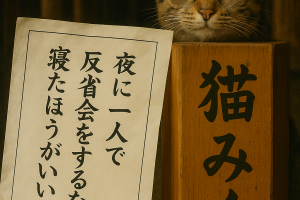 夜に一人で
反省会をするな
寝たほうがいい
猫み